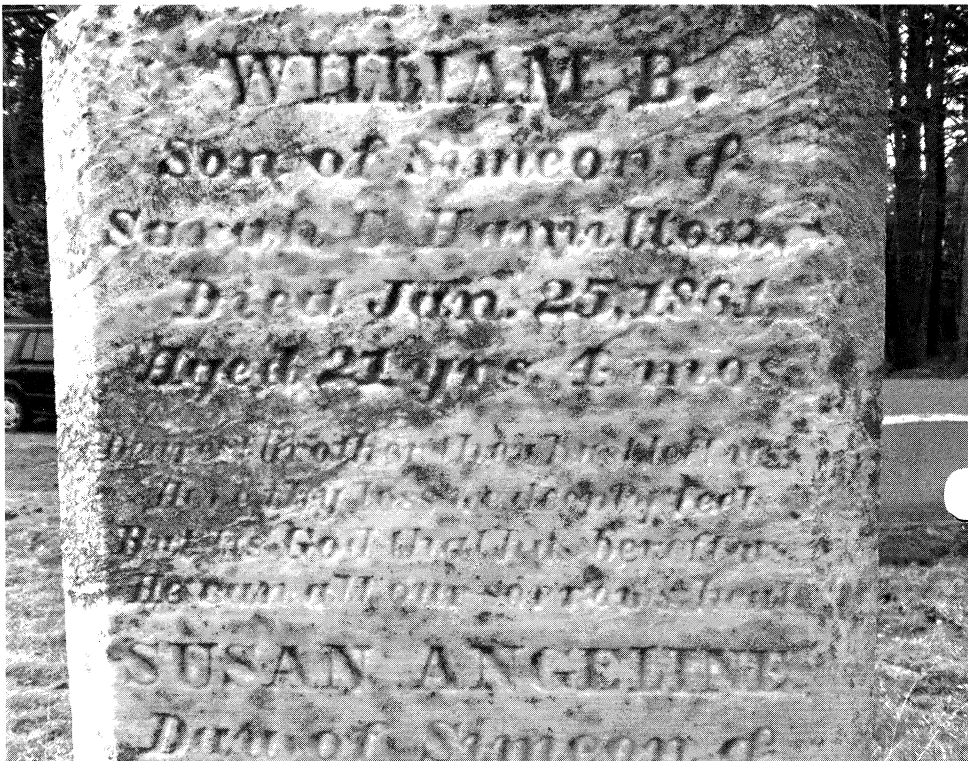 WILLIAM B.
Son of Simeon &
Sarah F Hamilton.
Died Jan. 25, 1861,
Aged 21 yrs 4 mos
Brother thou hast left us
Here thy loss we deeply feel
But tis God that hath bereft us
He can all our sorrows heal
SUSAN ANGELINE
Dau. of Simeon &